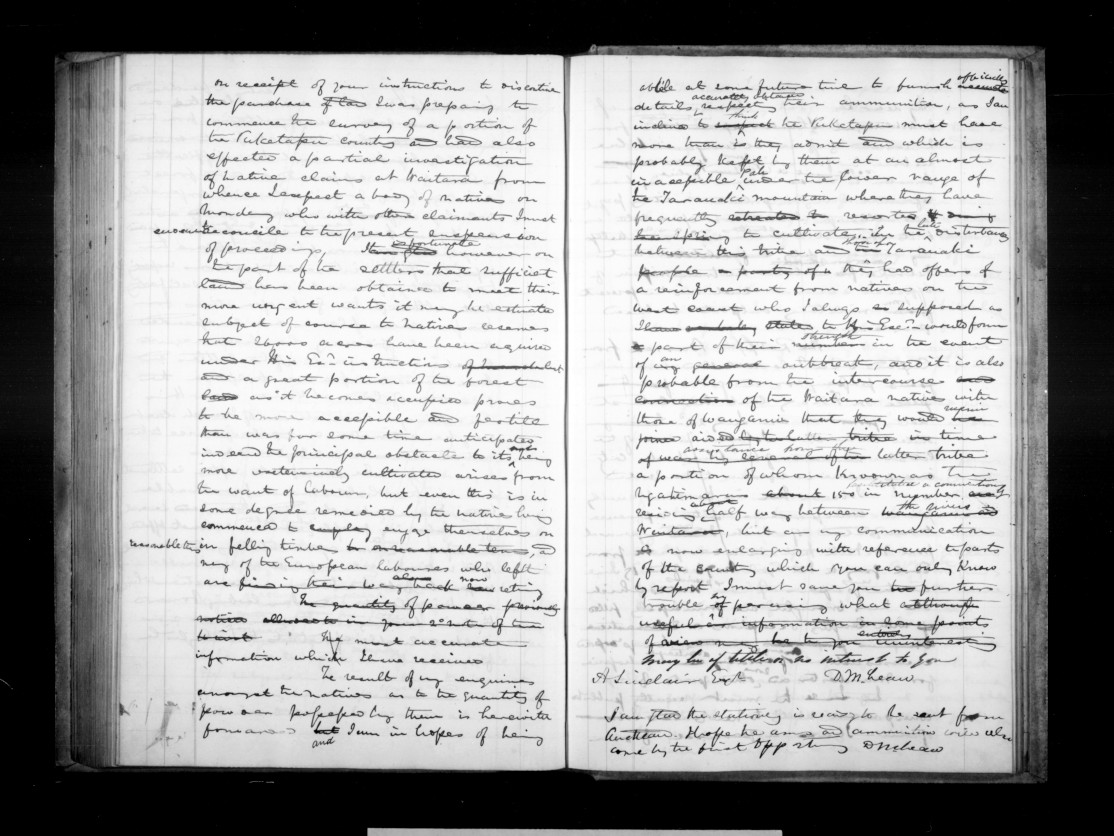 on receipt of your instructions to discontinue
the purchase of land I was preparing to
commence the survey of a portion of
the Puketapu country and had also
effected a partial investigation
of Native claims at Waitara from
whence I expect a body of natives on
Monday who with other claimants I must
endeavour to reconcile to the present suspension
of proceedings. It is fortunate however on
the part of the settlers that sufficient
land has been obtained to meet their
more urgent wants it may be estimated
subject of course to Native reserves
that acres have been acquired
under His Excy instructions
and a great portion of the forest
land as it becomes occupied proves
to be more accessible and fertile
than was for some time anticipated
indeed the principal obstacle to its not being
more extensively cultivated arises from
the want of labour, but even this is in
some degree remedied by the natives having
commenced to employ engage themselves on
reasonable terms in felling timber to on reasonable terms, and
many of the European labourers who left
are finding their way back also now returning
The quantity of powder previously
notice alluded to in your note of the
The most accurate
information which I have received
The result of my enquiries
amongst the natives as to the quantity of
powder possessed by them is herewith
forwarded but and I am in hopes of being
able at some future time to furnish accurate
details respecting their ammunition, as I am
inclined to suspect think the Puketapu must have
more than they admit and which is
probably kept by them at an almost
inaccessible Pah under the lower range of
the Taranaki mountain where they have
frequently retreated to resorted
to cultivate, when the late disturbances
between this tribe and the Taranaki
people a party of they had offers of
a reinforcement from natives on the
west coast who I always so supposed as
I have stated to His Excy would form
a part of their number strength in the event
of any general outbreak, and it is also
probable from the intercourse and
connection of the Waitara natives with
those of Wanganui that they would
joined aided by the latter tribe in time
of war by several of the latter tribe
a portion of whom known as the
Ngatimaru about 150 in number
residing about half way between Wanganui and the rivers
Waitara, but in my communication
is now enlarging with reference to parts
of the country which you can only know
by report, I must save you the further
trouble of perusing what although
useful is information in some points
of view may be to you entirely uninteresting
may be of little or no interest to you
A Sinclair Esqr D. McLean
I am glad the stationery is ready to be sent from
Auckland. I hope the arms and ammunition will also
come by the first opportunity D McLean